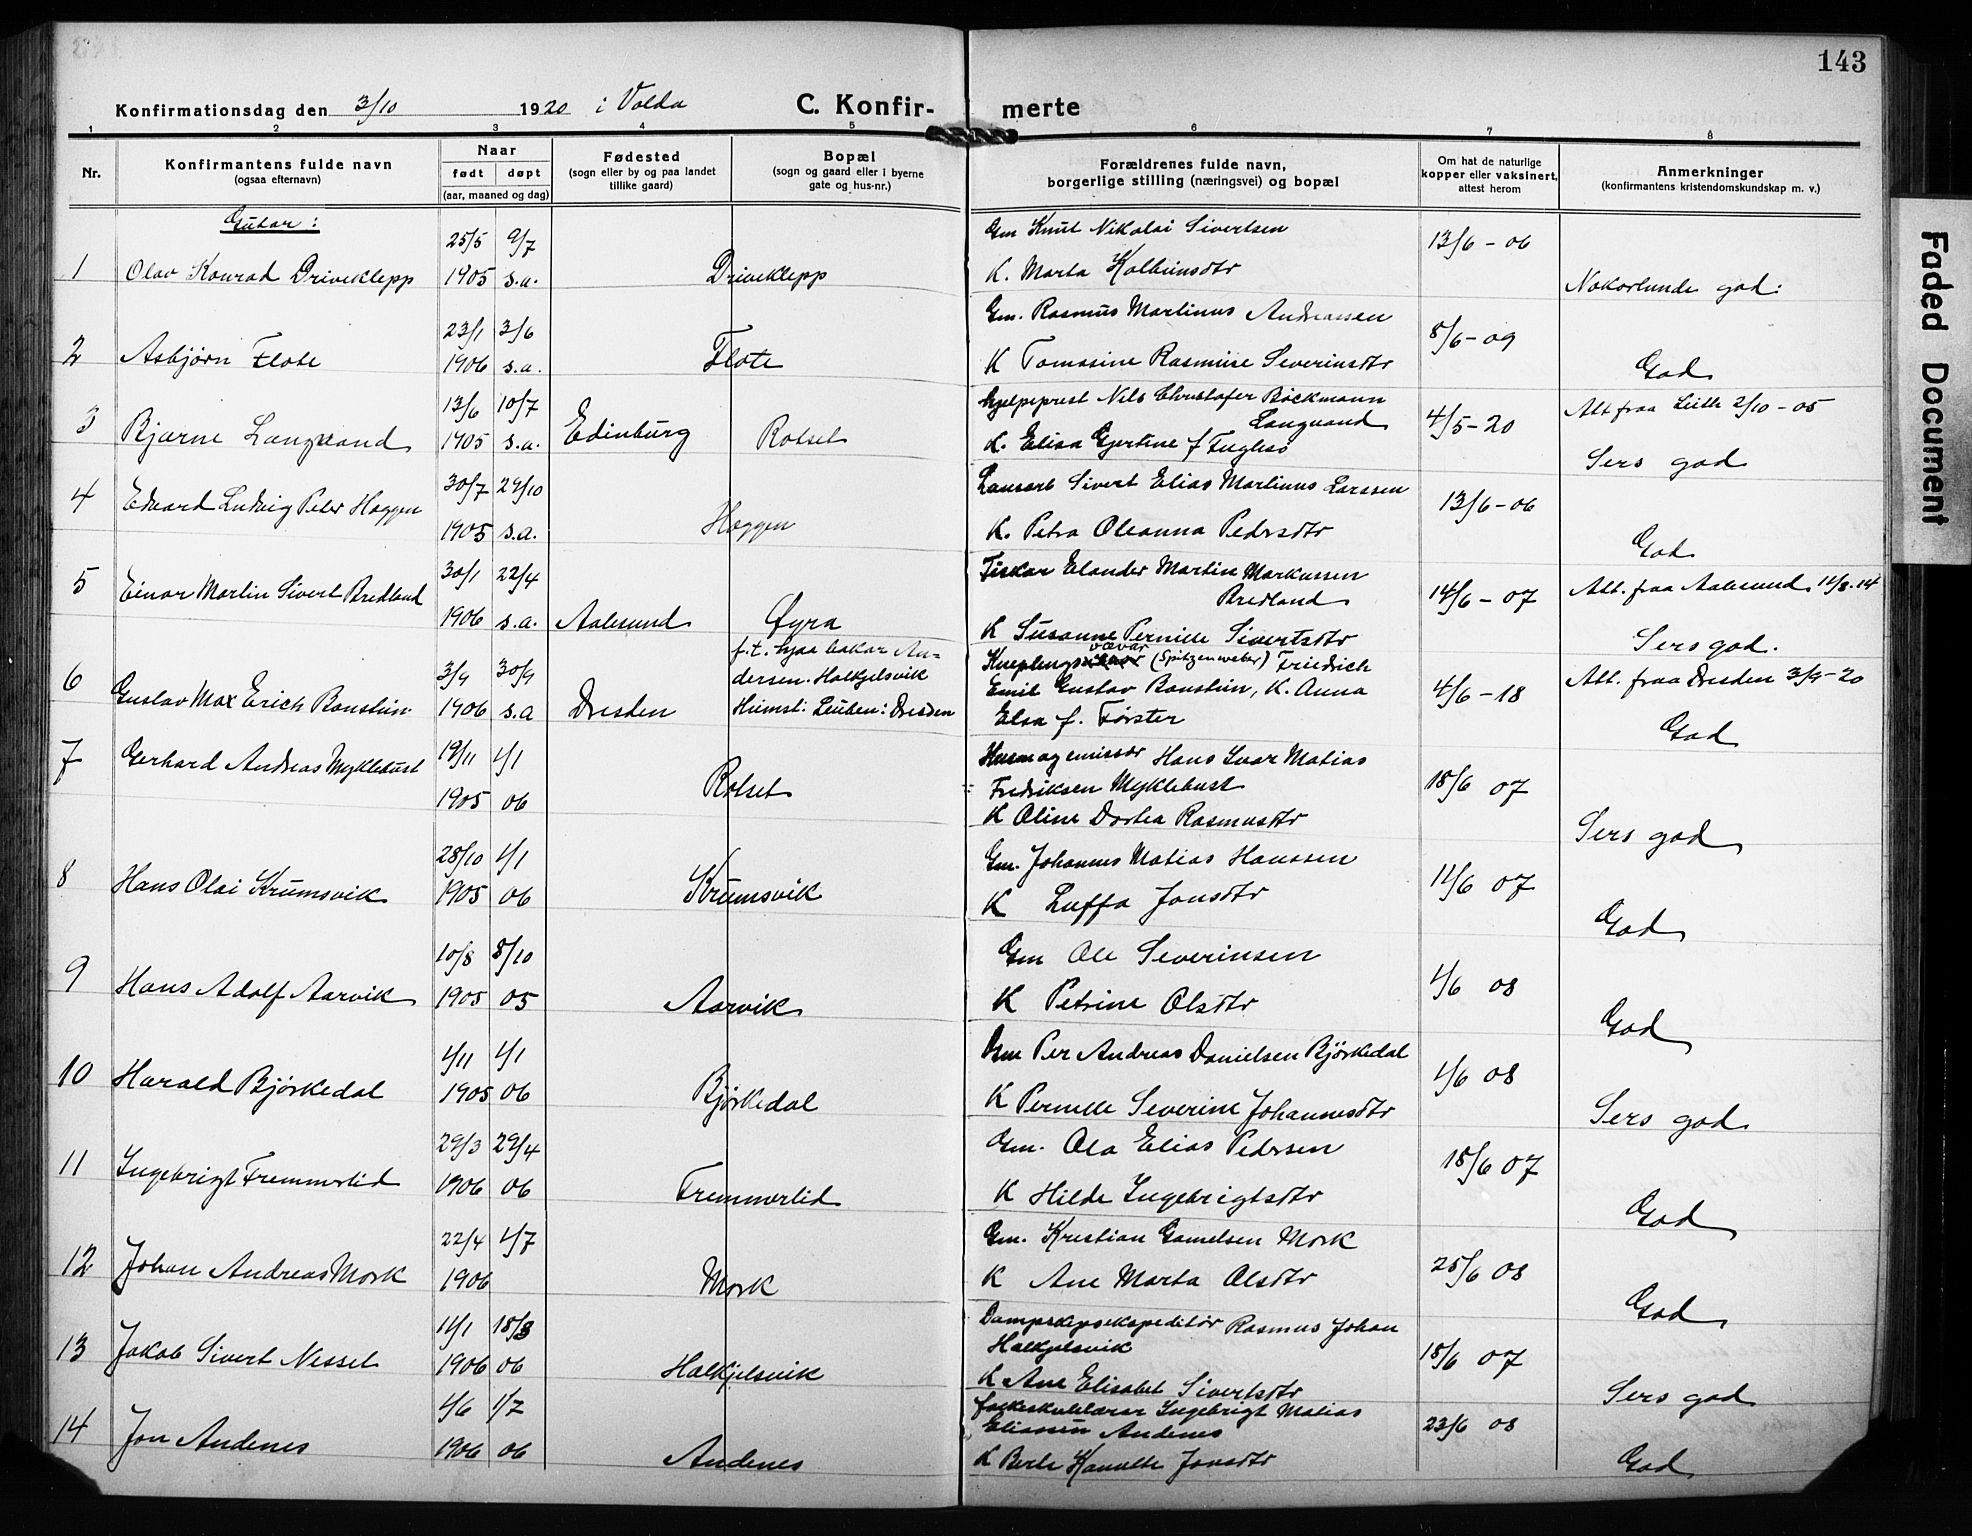 143
Konfirmationsdag den 3/10 1920 i Volda C. Konfirmerte
1 2 3 4 5 6 7 8
Nr.
Konfirmantens fulde navn
(ogsaa efternavn)
Naar
født døpt
(aar, maaned og dag)
Fødested
(sogn eller by og paa landet
tillike gaard)
Bopæl
(sogn og gaard eller i byerne
gate og hus-nr.)
Forældrenes fulde navn,
borgerlige stilling (næringsvei) og bopæl
Om hat de naturlige
kopper eller vaksinert,
attest herom
Anmerkninger
(konfirmantens kristendomskundskap m. v.)
Gutar:
1 Olav Konrad Driveklepp 25/5 1905 9/7 s.a. Driveklepp
Gm Knut Nikolai Sivertsen
K. Marta Kolbeinsdtr
13/6 - 06
Nokorlunde god.
2 Asbjørn Flote 23/1 1906 3/6 s.a. Flote
Gm. Rasmus Martinus Andreassen
K Tomasine Rasmine Severinsdtr
8/6 - 09
God
3 Bjarne Langvand 13/6 1905 10/7 s.a. Edinburg Rotset
Hjelpeprest Nils Christofer Bøckmann
Langvand
K. Elisa Gjertine f Fuglesø
4/5 - 20
Att fraa Leith 2/10 - 05
Sers god
4 Edvard Ludvig Peter Heggen 30/7 1905 29/10 s.a. Heggen
Lausarb Sivert Elias Martinus Larssen
K. Petra Oleanna Pedrsdtr
13/6 - 06
God
5 Einar Martin Sivert Bredland 30/1 1906 22/4 s.a. Aalesund Øyra
Fiskar Elander Martin Markussen
Bredland
K Susanne Pernille Sivertsdtr
14/6 - 07
Att. fraa Aalesund 11/8 - 14
Sers god.
6 Gustav Max Erich Bonstein 3/9 1906 30/9 s.a Dresden
f.t. hjaa bakar An-
dersen. Halkjelsvik
Heimst: Leuben: Dresden
Kneplings vævar (Spitzenweber) Friedrich
Emil Gustav Bonstein, K. Anna
Elsa f. Førster
4/6 - 18
Att. fraa Dresden 3/9 - 20
God
7 Gerhard Andreas Myklebust 19/11 1905 1/1 06 Rotset
Husm og emissær Hans Ivar Matias
Fredriksen Myklebust
K Oline Dortea Rasmusdtr
18/6 07
Sers god
8 Hans Olai Krumsvik 28/10 1905 1/1 06 Krumsvik
Gm. Johannes Matias Hanssen
K Luffa Jonsdtr
11/6 07
God
9 Hans Adolf Aarvik 10/8 1905 8/10 05 Aarvik
Gm Ole Severinsen
K Petrine Olsdtr
1/6 08
God
10 Harald Bjørkedal 1/11 1905 1/1 06 Bjørkedal
Gm Per Andreas Danielsen Bjørkedal
K Pernille Severine Johannesdtr
1/6 08
Sers god
11 Ingebrigt Fremmerlid 29/3 1906 29/4 06 Fremmerlid
Gm. Ola Elias Pedrsen
K Hilde Ingebrigtsdtr
18/6 07
God
12 Johan Andreas Mork 22/4 1906 1/7 Mork
Gm. Kristian Gamelsen Mork
K Ane Marta Olsdtr
25/6 08
God
13 Jakob Sivert Nesset 11/1 1906 18/3 06 Halkjelsvik
Dampskipsekspeditør Rasmus Johan
Halkjelsvik
K Ane Elisabet Sivertsdtr
18/6 07
Sers god
14 Jon Andenes 4/6 1906 1/7 06 Andenes
Folkeskulelærar Ingebrigt Matias
Eliassen Andenes
K Berte Kanutte Jonsdtr
23/6 08
God
Faded Document